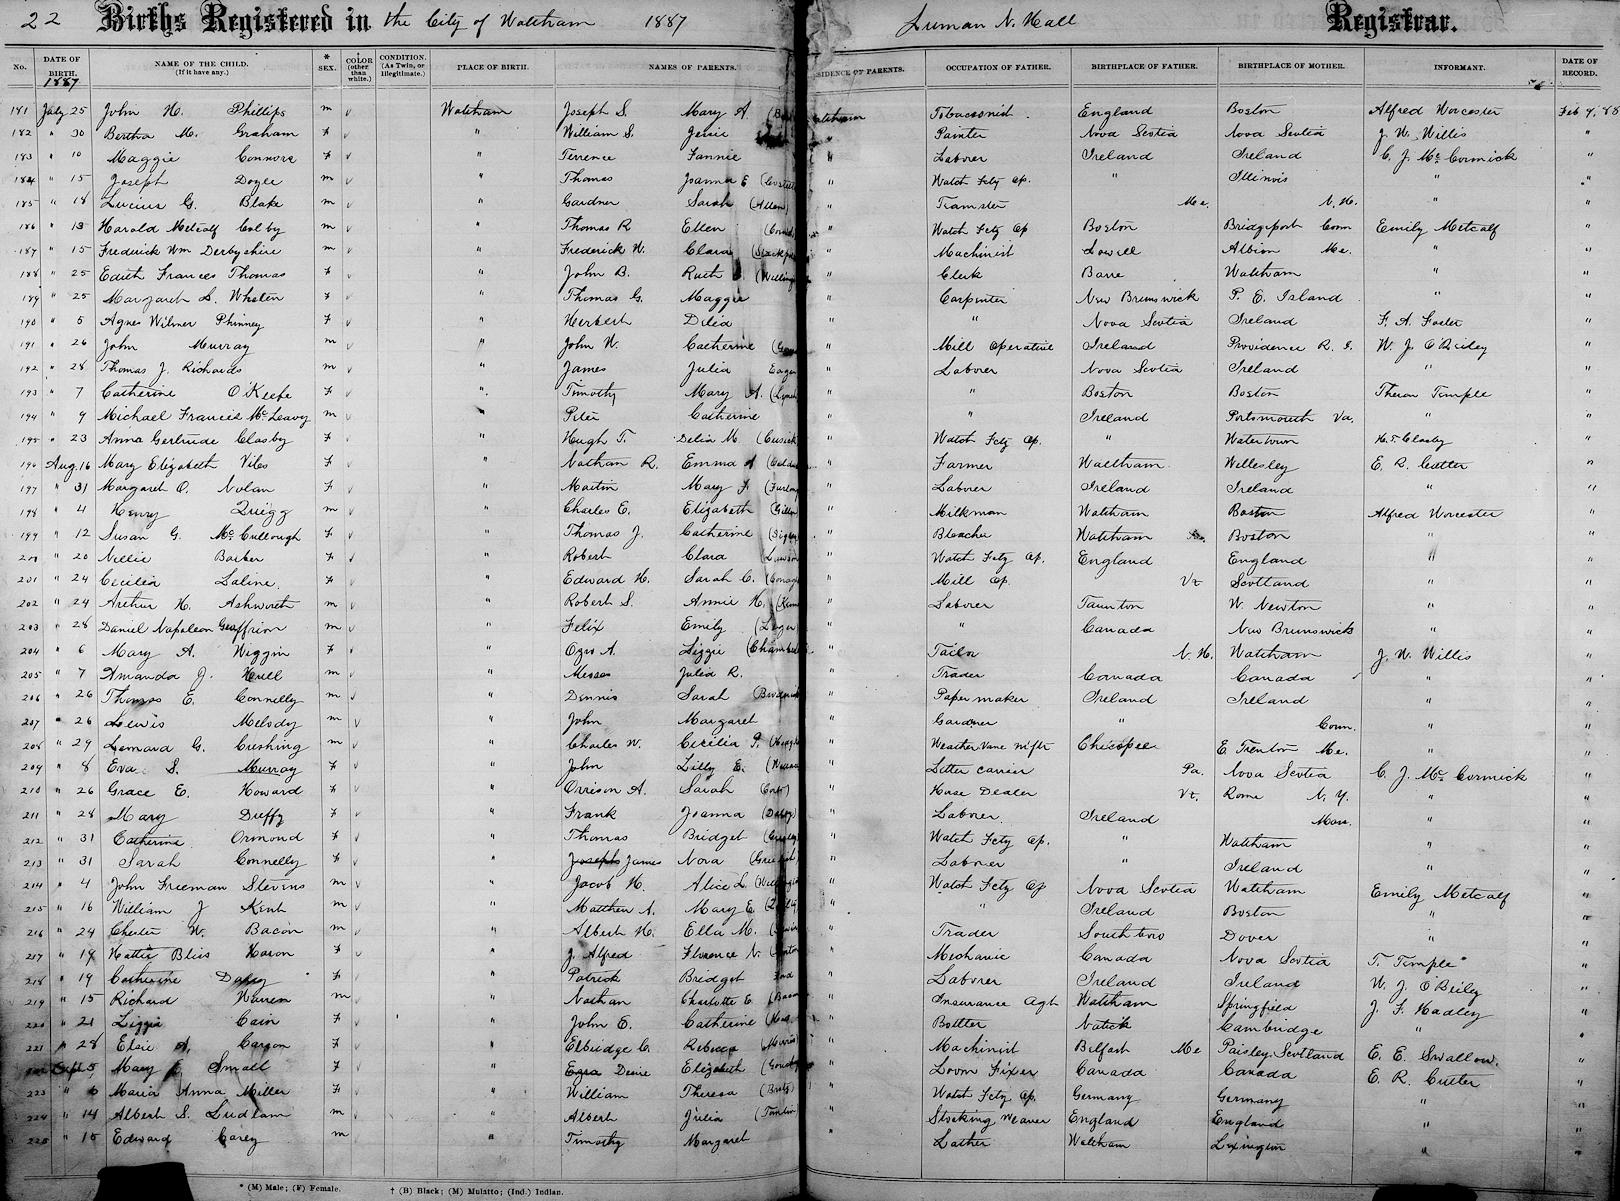 22 Births Registered in the City of Waltham 1887 Luman N. Hall Registrar.
No. DATE OF BIRTH. 1887 NAME OF THE CHILD. (If it have any.) * SEX. COLOR (other than white.) CONDITION. (As Twin, or Illegitimate.) PLACE OF BIRTH. NAMES OF PARENTS. SIDENCE OF PARENTS. OCCUPATION OF FATHER. BIRTHPLACE OF FATHER. BIRTHPLACE OF MOTHER. INFORMANT. DATE OF RECORD.
181 July 25 John H. Phillips m Waltham Joseph S. Mary A. Waltham Tobacconist England Boston Alfred Worcester Feb 4, 88
182 " 30 Bertha M. Graham F " William S. Jessie " Painter Nova Scotia Nova Scotia J. W. Willis "
183 " 10 Maggie Connors F " Terrence Fannie " Laborer Ireland Ireland C. J. McCormick "
184 " 15 Joseph Doyle m " Thomas Joanna E " Watch Fcty Op. " Illinois " "
185 " 18 Lucius G. Blake m " Gardner Sarah (Allen) " Teamster Me. N.H. " "
186 " 13 Harold Metcalf Colby m " Thomas R Ellen " Watch Fcty Op Boston Bridgeport Conn Emily Metcalf "
187 " 15 Frederick Wm Derbyshire m " Frederick W. Clara " Machinist Lowell Albion Me. " "
188 " 25 Edith Frances Thomas F " John B. Ruth " Clerk Barre Waltham " "
189 " 25 Margaret L. Whelen F " Thomas G. Maggie " Carpenter New Brunswick P. E. Island " "
190 " 5 Agnes Wilmer Phinney F " Herbert Delia " " Nova Scotia Ireland F. A. Foster "
191 " 26 John Murray m " John W. Catherine " Mill Operative Ireland Providence R. I. W. J. O'Reiley "
192 " 28 Thomas J. Richards m " James Julia " Laborer Nova Scotia Ireland " "
193 " 7 Catherine O'Keefe F " Timothy Mary A. (Lynch " " Boston Boston Theron Temple "
194 " 9 Michael Francis McLeavy m " Peter Catherine " " Ireland Portsmouth Va. " "
195 " 23 Anna Gertrude Clasby F " Hugh T. Delia M. (Cusick " Watch Fcty Op. " Watertown H. T. Clasby "
196 Aug. 16 Mary Elizabeth Viles F " Nathan R. Emma " Farmer Waltham Wellesley E. R. Cutler "
197 " 31 Margaret O. Nolan F " Martin Mary F. (Furlong " Laborer Ireland Ireland " "
198 " 4 Henry Quigg m " Charles E. Elizabeth " Milkman Waltham Boston Alfred Worcester "
199 " 12 Susan G. McCullough F " Thomas J. Catherine " Bleacher Waltham Boston " "
200 " 20 Nellie Barber F " Robert Clara " Watch Fcty Op. England England " "
201 " 24 Cecilia Laline. F " Edward H. Sarah C. " Mill Op. Vt Scotland " "
202 " 24 Arthur H. Ashworth m " Robert S. Annie H. " Laborer Taunton W. Newton " "
203 " 28 Daniel Napoleon Geoffrion m " Felix Emily " " Canada New Brunswick " "
204 " 6 Mary A. Wiggin F " Ezra A. Lizzie " Tailor N. H. Waltham J. W. Willis "
205 " 7 Amanda J. Hull m " Messos Julia R. " Trader Canada Canada " "
206 " 26 Thomas E. Connelly m " Dennis Sarah " Paper maker Ireland Ireland " "
207 " 26 Lewis Melody m " John Margaret " Gardner " Conn. " "
208 " 29 Leonard G. Cushing m " Charles W. Cecilia P. " Weather Vane Mftr Chicopee E Trenton Me. " "
209 " 8 Eva S. Murray F " John Lilly E. " Letter Carrier Pa. Nova Scotia C. J. McCormick "
210 " 26 Grace E. Howard F " Orrison A. Sarah " Horse Dealer Vt. Rome N. Y. " "
211 " 28 Mary Duffy F " Frank Joanna " Laborer Ireland Mass. " "
212 " 31 Catherine Ormond F " Thomas Bridget " Watch Fcty Op. " Waltham " "
213 " 31 Sarah Connelly F " Joseph James Nora " Laborer " Ireland " "
214 " 4 John Freeman Stevens m " Jacob H. Alice L. " Watch Fcty Op Nova Scotia Waltham Emily Metcalf "
215 " 16 William J Kent m " Matthew A. Mary E " " Ireland Boston " "
216 " 24 Chester W. Bacon m " Albert H. Ella M. " Trader Southboro Dover " "
217 " 14 Hattie Bliss Hason F " J. Alfred Florence N. " Mechanic Canada Nova Scotia T. Temple "
218 " 19 Catherine Daley F " Patrick Bridget " Laborer Ireland Ireland W. J. O'Reily "
219 " 15 Richard Warren m " Nathan Charlotte E. (Bacon " Insurance Agt Waltham Springfield J. F. Hadley "
220 " 21 Lizzie Cain F " John E. Catherine " Bottler Natick Cambridge " "
221 " 28 Elsie A. Carson F " Elbridge C. Rebecca " Machinist Belfast Me Paisley Scotland E. E. Swallow. "
Sept 5 Mary Small F " Ezra Desire Elizabeth " Loom Fixer Canada Canada E. R. Cutler "
223 " 6 Maria Anna Miller F " William Theresa " Watch Fcty Op. Germany Germany " "
224 " 14 Albert S. Ludlam m " Albert Julia " Stocking Weaver England England " "
225 " 15 Edward Carey m " Timothy Margaret " Lather Waltham Lexington " "
* (M) Male; (F) Female. † (B) Black; (M) Mulatto; (Ind.) Indian.